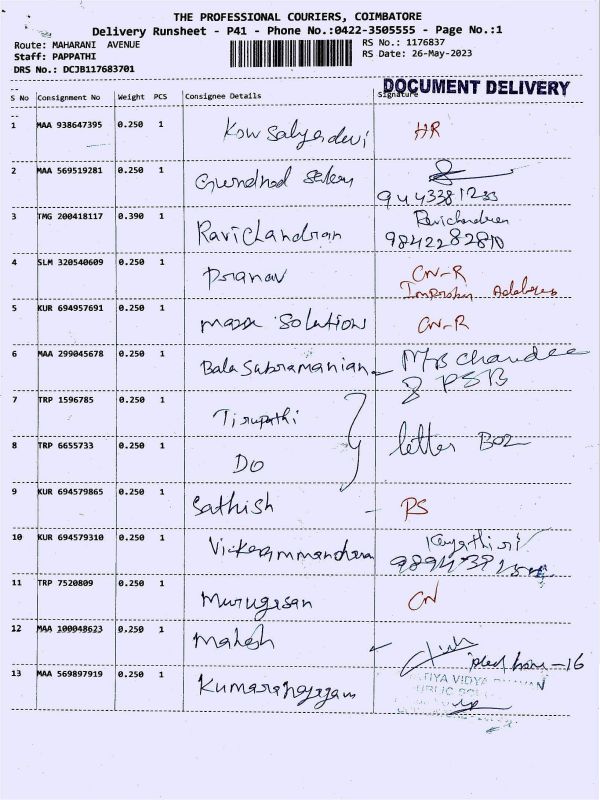 THE PROFESSIONAL COURIERS, COIMBATORE
Delivery Runsheet - P41 - Phone No.:0422-3505555 - Page No.:1
Route: MAHARANI AVENUE RS No.: 1176837
Staff: PAPPATHI RS Date: 26-May-2023
DRS No.: DCJB117683701
DOCUMENT DELIVERY
S No Consignment No Weight PCS Consignee Details Signature
1 MAA 938647395 0.250 1 HR
2 MAA 569519281 0.250 1
3 TMG 200418117 0.390 1 Ravichandran Ravichandran
4 SLM 320540609 0.250 1 Pranav CN-R
5 KUR 694957691 0.250 1 solutions CN-R
6 MAA 299045678 0.250 1 Balasubramanian
PSB
7 TRP 1596785 0.250 1 Tirupathi
letter Box
8 TRP 6655733 0.250 1 DO
9 KUR 694579865 0.250 1 Sathish RS
10 KUR 694579310 0.250 1
11 TRP 7520809 0.250 1 Murugesan CN
12 MAA 100048623 0.250 1 Mahesh
13 MAA 569897919 0.250 1